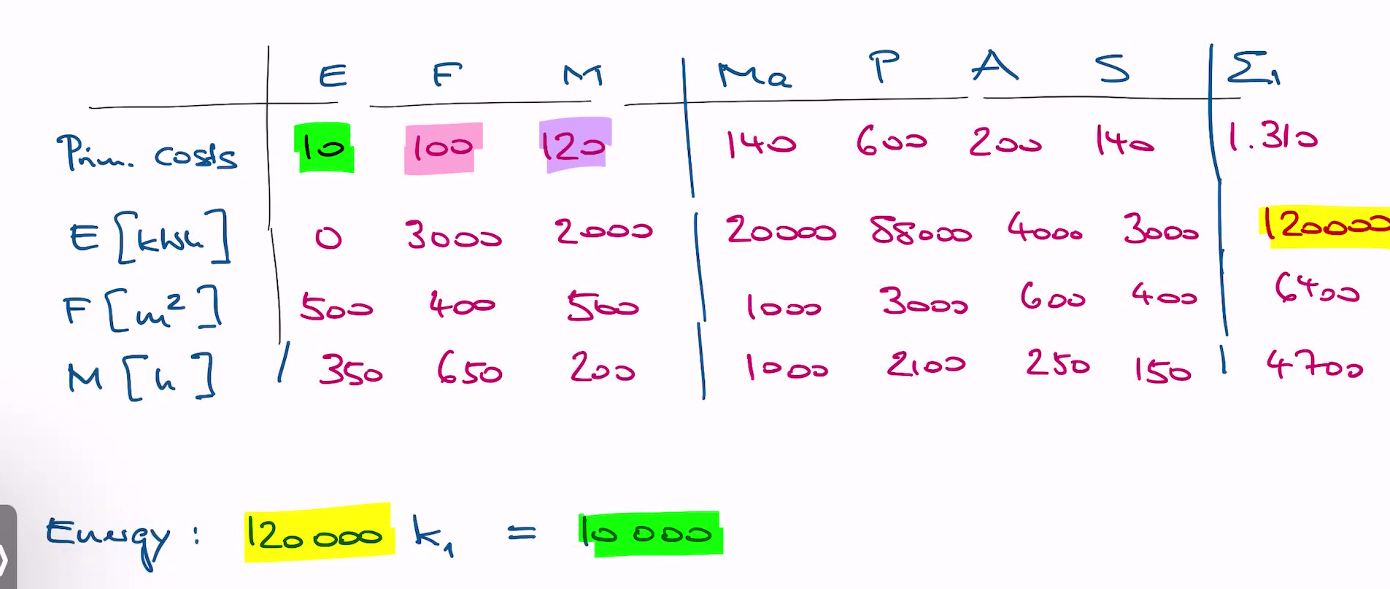 E F M Ma P A S Σ₁
Prim. costs 10 100 120 140 600 200 140 1.310
E [kWh] 0 3000 2000 20000 88000 4000 3000 120000
F [m²] 500 400 500 1000 3000 600 400 6400
M [h] 350 650 200 1000 2100 250 150 4700
Energy: 120 000 k₁ = 10 000